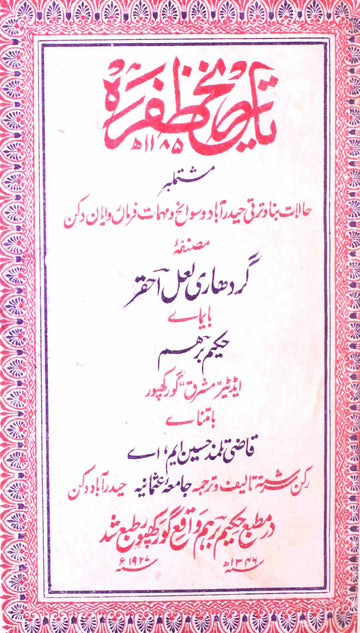 تاریخ ظفرہ
۱۱۸۵ھ
مشتملبر
حالات بنا و ترقی حیدرآباد و سوانح و مہمات فرماں روایان دکن
مصنفۂ
گردھاری لعل احقر
بایاے
حکیم برہم
ایڈیٹر "مشرق" گورکھپور
باعتناے
قاضی تلمذ حسین ایم، اے
رکن سررشتۂ تالیف و ترجمہ جامعہ عثمانیہ حیدرآباد دکن
در مطبع حکیم برہم واقع گورکھپور طبع شد
۱۳۴۶ھ ۱۹۲۷ء